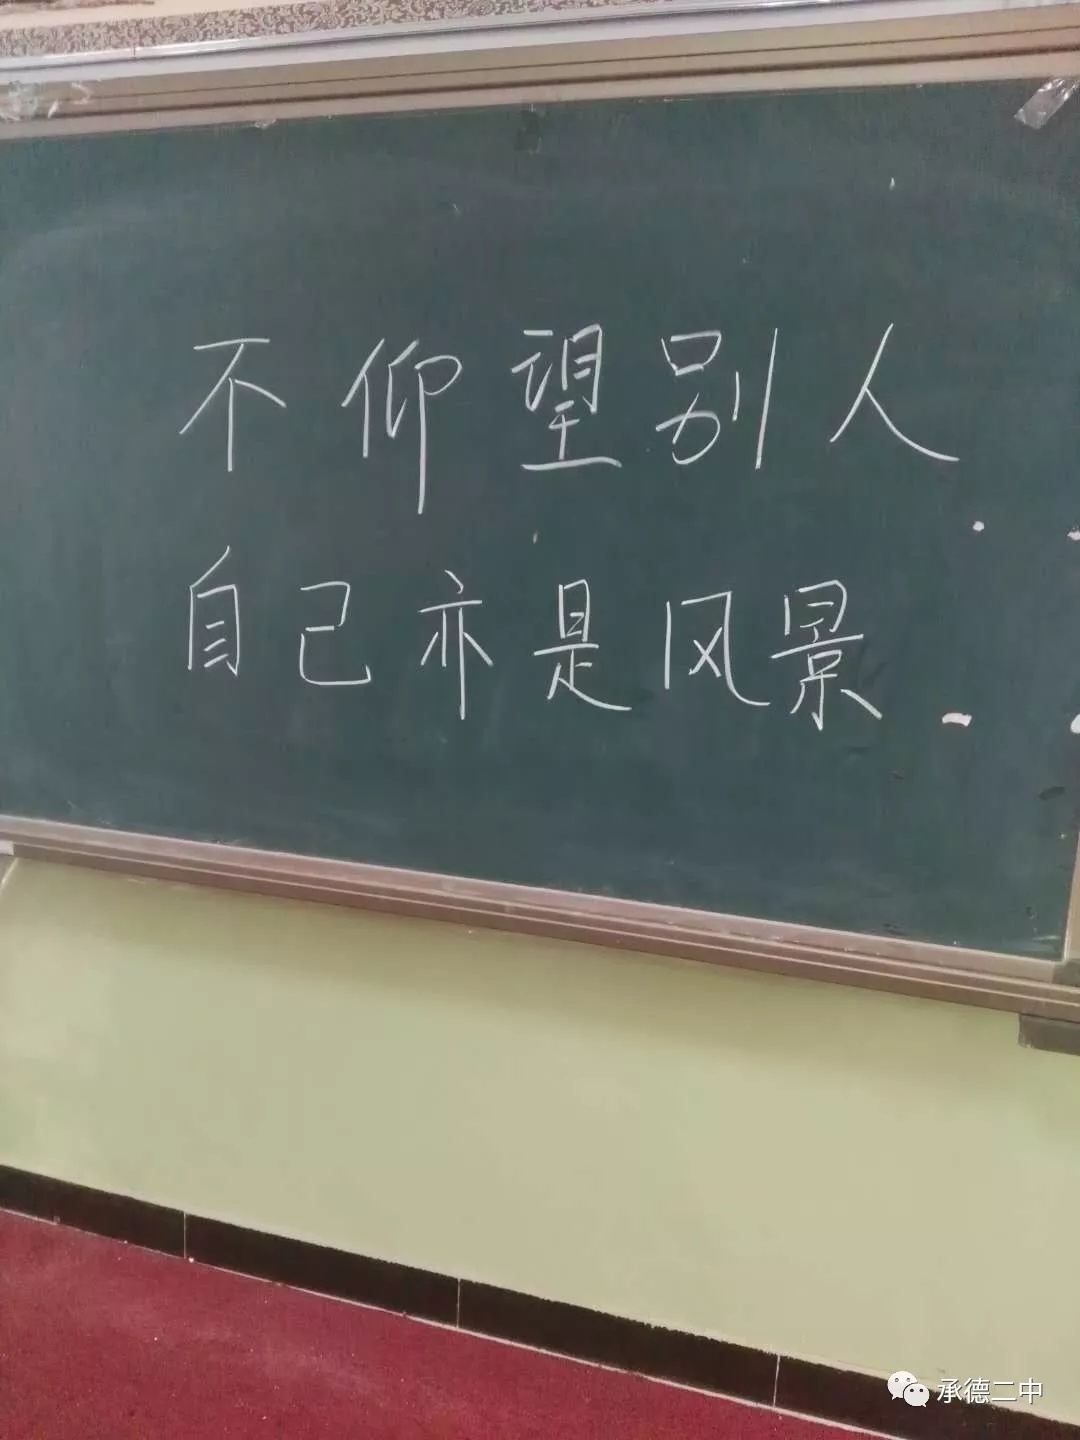 不仰望别人
自己亦是风景
承德二中